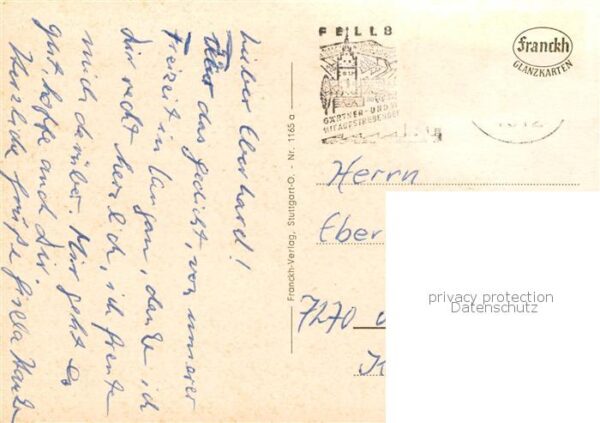 Lieber Eberhard!
Für das Gedicht, von unserer
Freizeit in Langau, danke ich
Dir recht herzlich, ich freute
mich darüber. Mir geht es
gut, hoffe auch Dir.
Herzliche Grüße Gisela
Franckh-Verlag, Stuttgart-O. - Nr. 1165 a
FELLB
GÄRTNER- UND
Franckh
GLANZKARTEN
Herrn
Eber
7270
K
privacy protection
Datenschutz